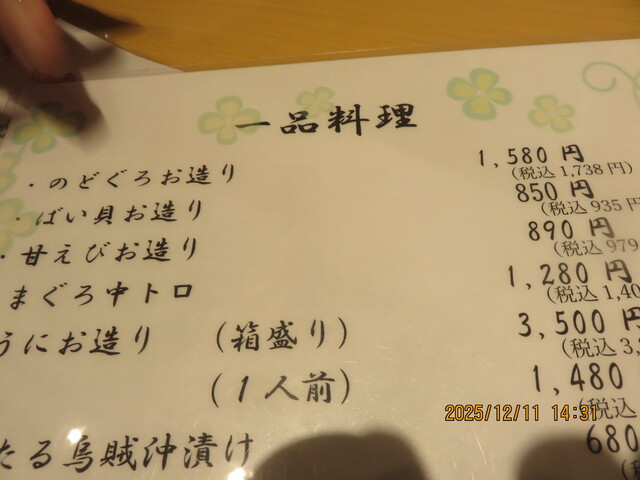 一品料理
・のどぐろお造り 1,580円
(税込1,738円)
・ばい貝お造り 850円
(税込 935円
・甘えびお造り 890円
(税込 979
まぐろ中トロ 1,280円
(税込1,40
うにお造り (箱盛り) 3,500円
(税込3,
(1人前) 1,480
(税込
たる烏賊沖漬け 680
2025/12/11 14:31